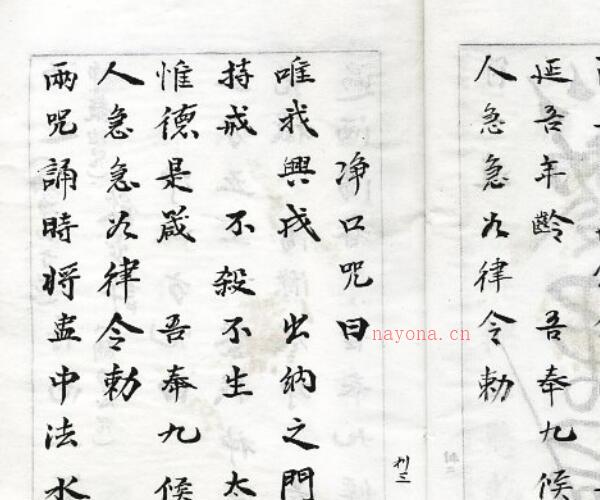 延吾年齡 吾奉九候
人急急如律令勅
净口咒曰
唯我興戎 出納之門
持戒 不殺不生 太
惟德是箴 吾奉九候
人急急如律令勅
兩咒誦時將盂中法水
nayona.cn